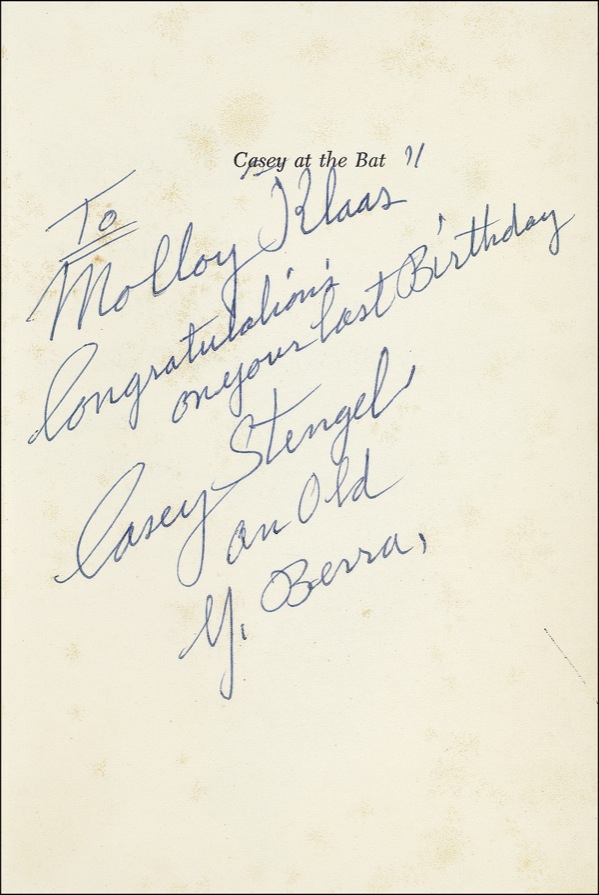 Casey at the Bat
To
Molloy "Klaas"
Congratulations
on your last Birthday
Casey Stengel
an Old
Y. Berra,